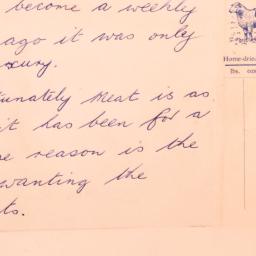 become a weekly
ago it was only
Meat is as
it has been for a
reason is the
wanting the
Home-drie
lbs.